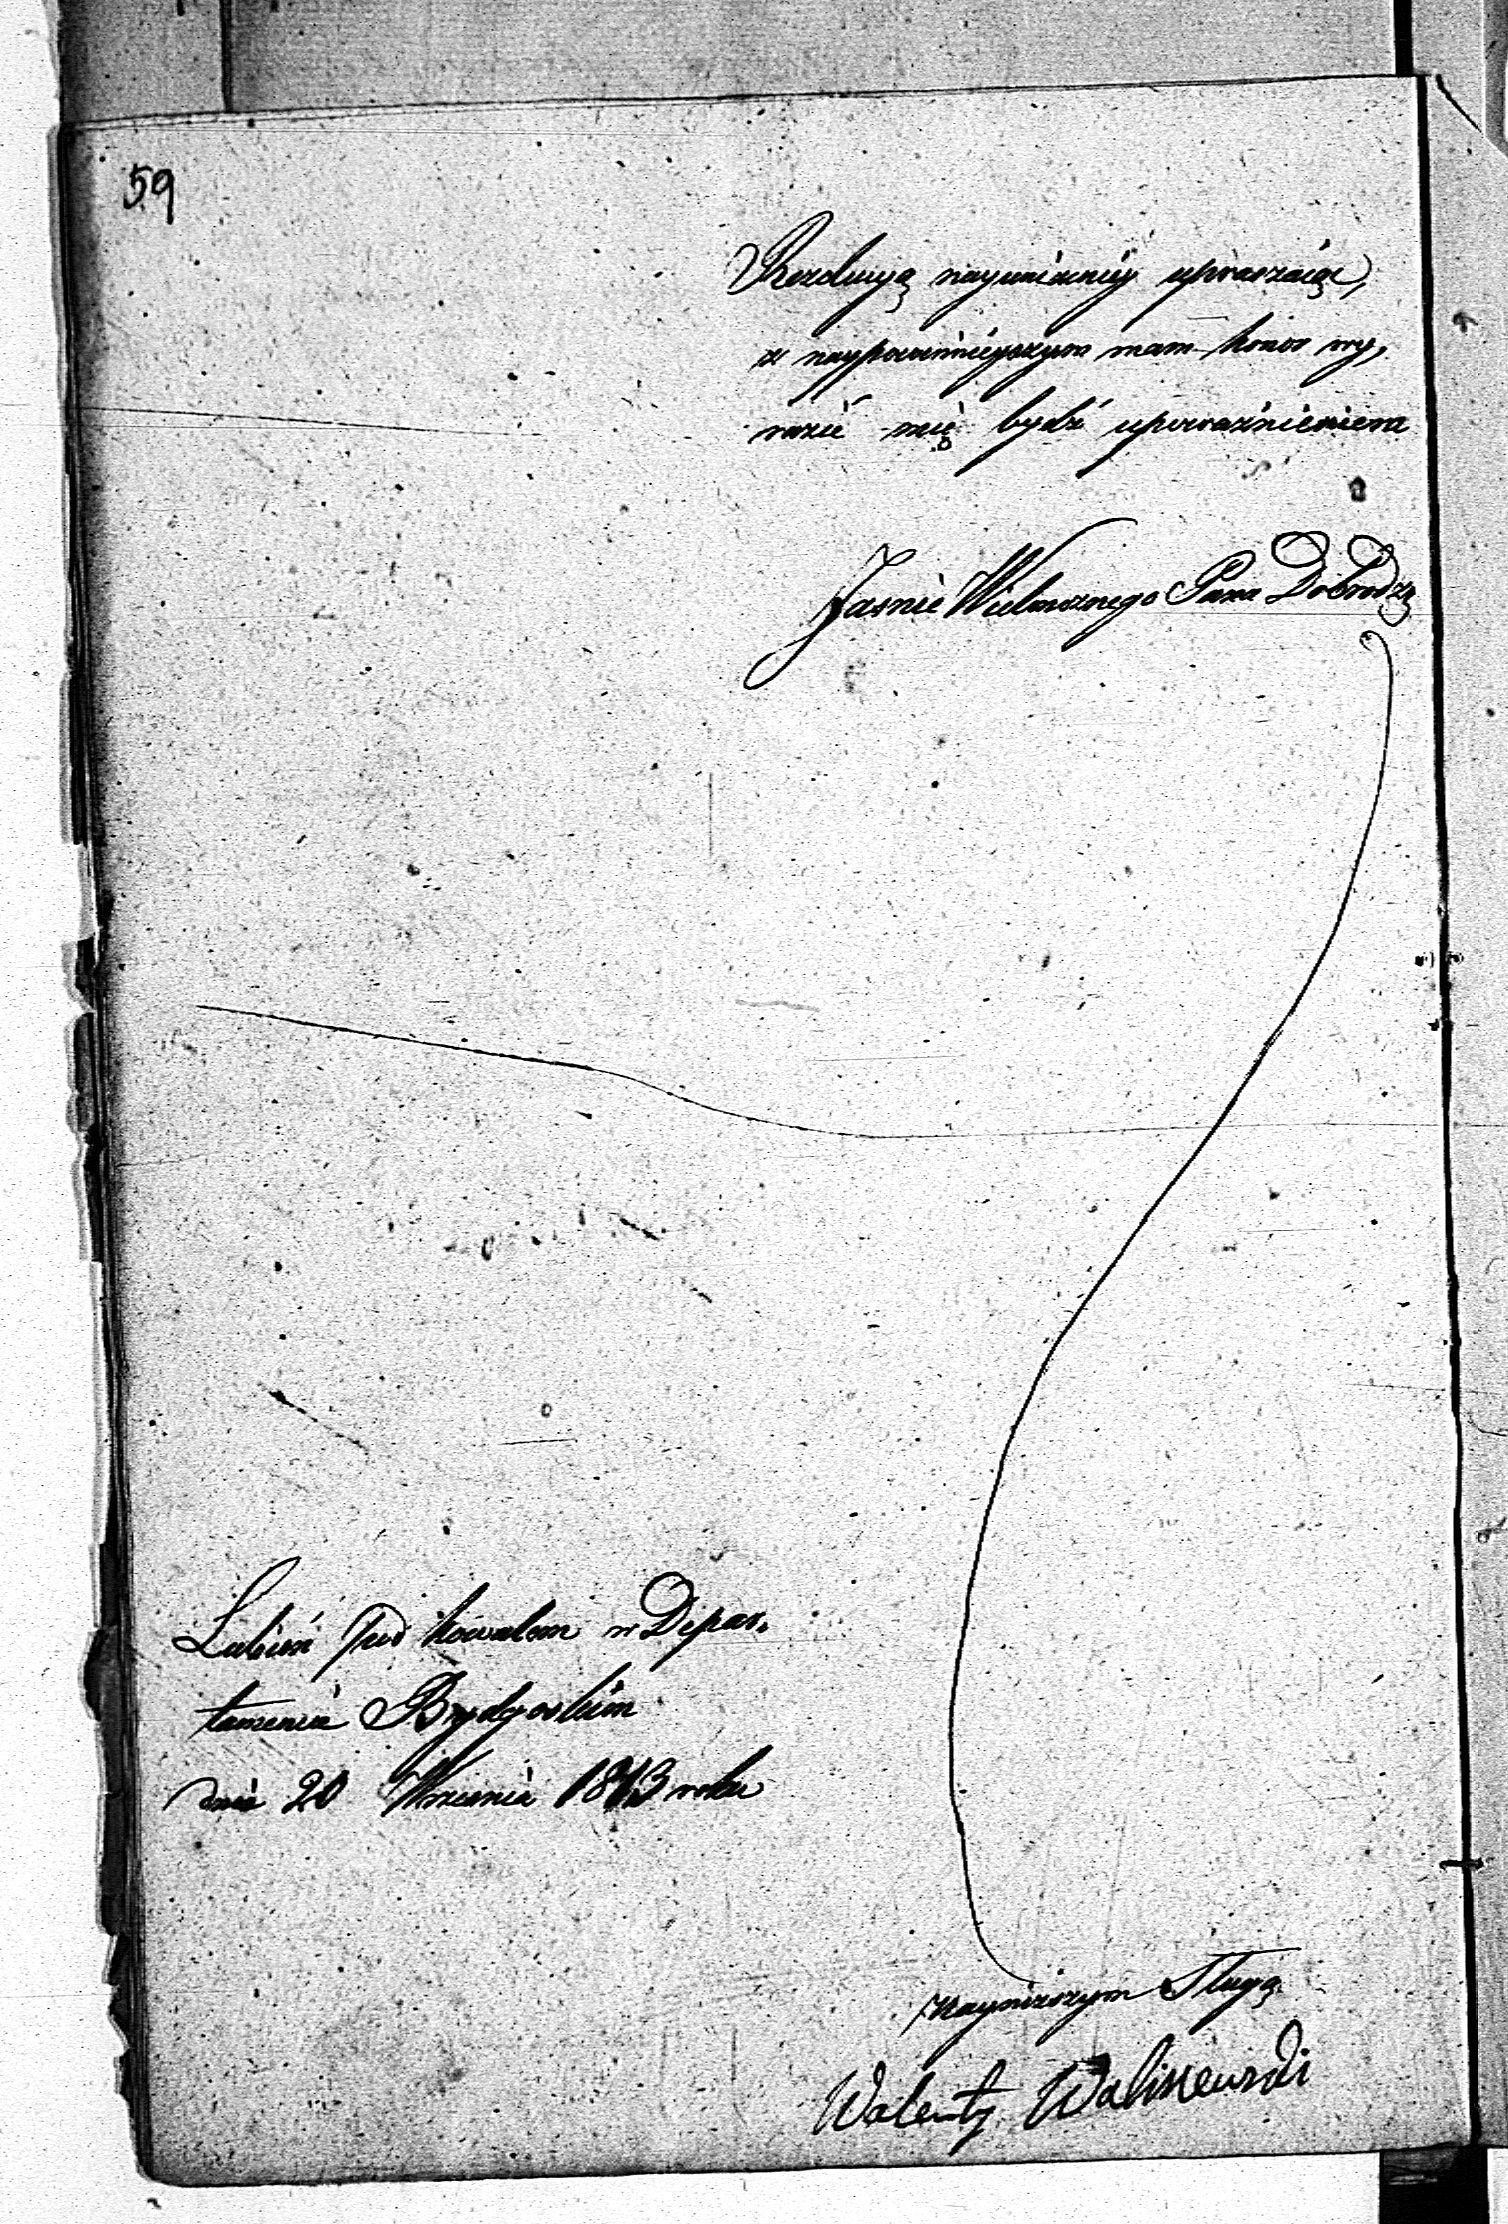 59
Rezolucyą nayuniżeniey upraszaiąc,
z naypowinnieyszym mam honor wy,
razić się bydź upoważnieniem
Jaśnie Wielmożnego Pana Dobrodzą
Lubień pod Kowalem w Depar,
tamencie Bydgoskim
dnia 20 Września 1813 roku
Nayniższym Sługą
Walenty Waliszewski